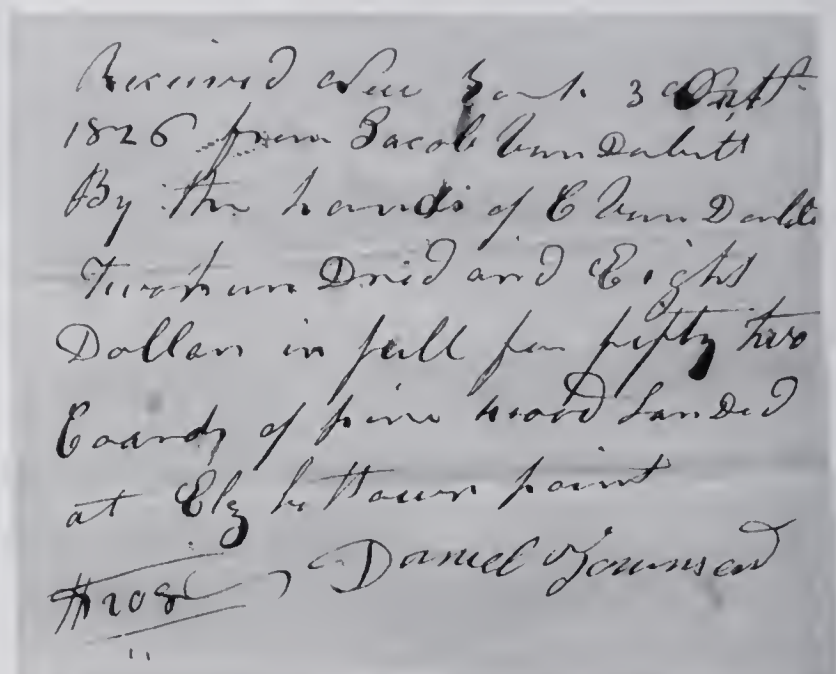 Received New York 3 Octr
1826 from Jacob Van Derbilt
By the hands of C Van Derbilt
Two hun Dred and Eight
Dollars in full for fifty two
Coards of pine wood Landed
at Elz bettown point
$208 Daniel Townsend